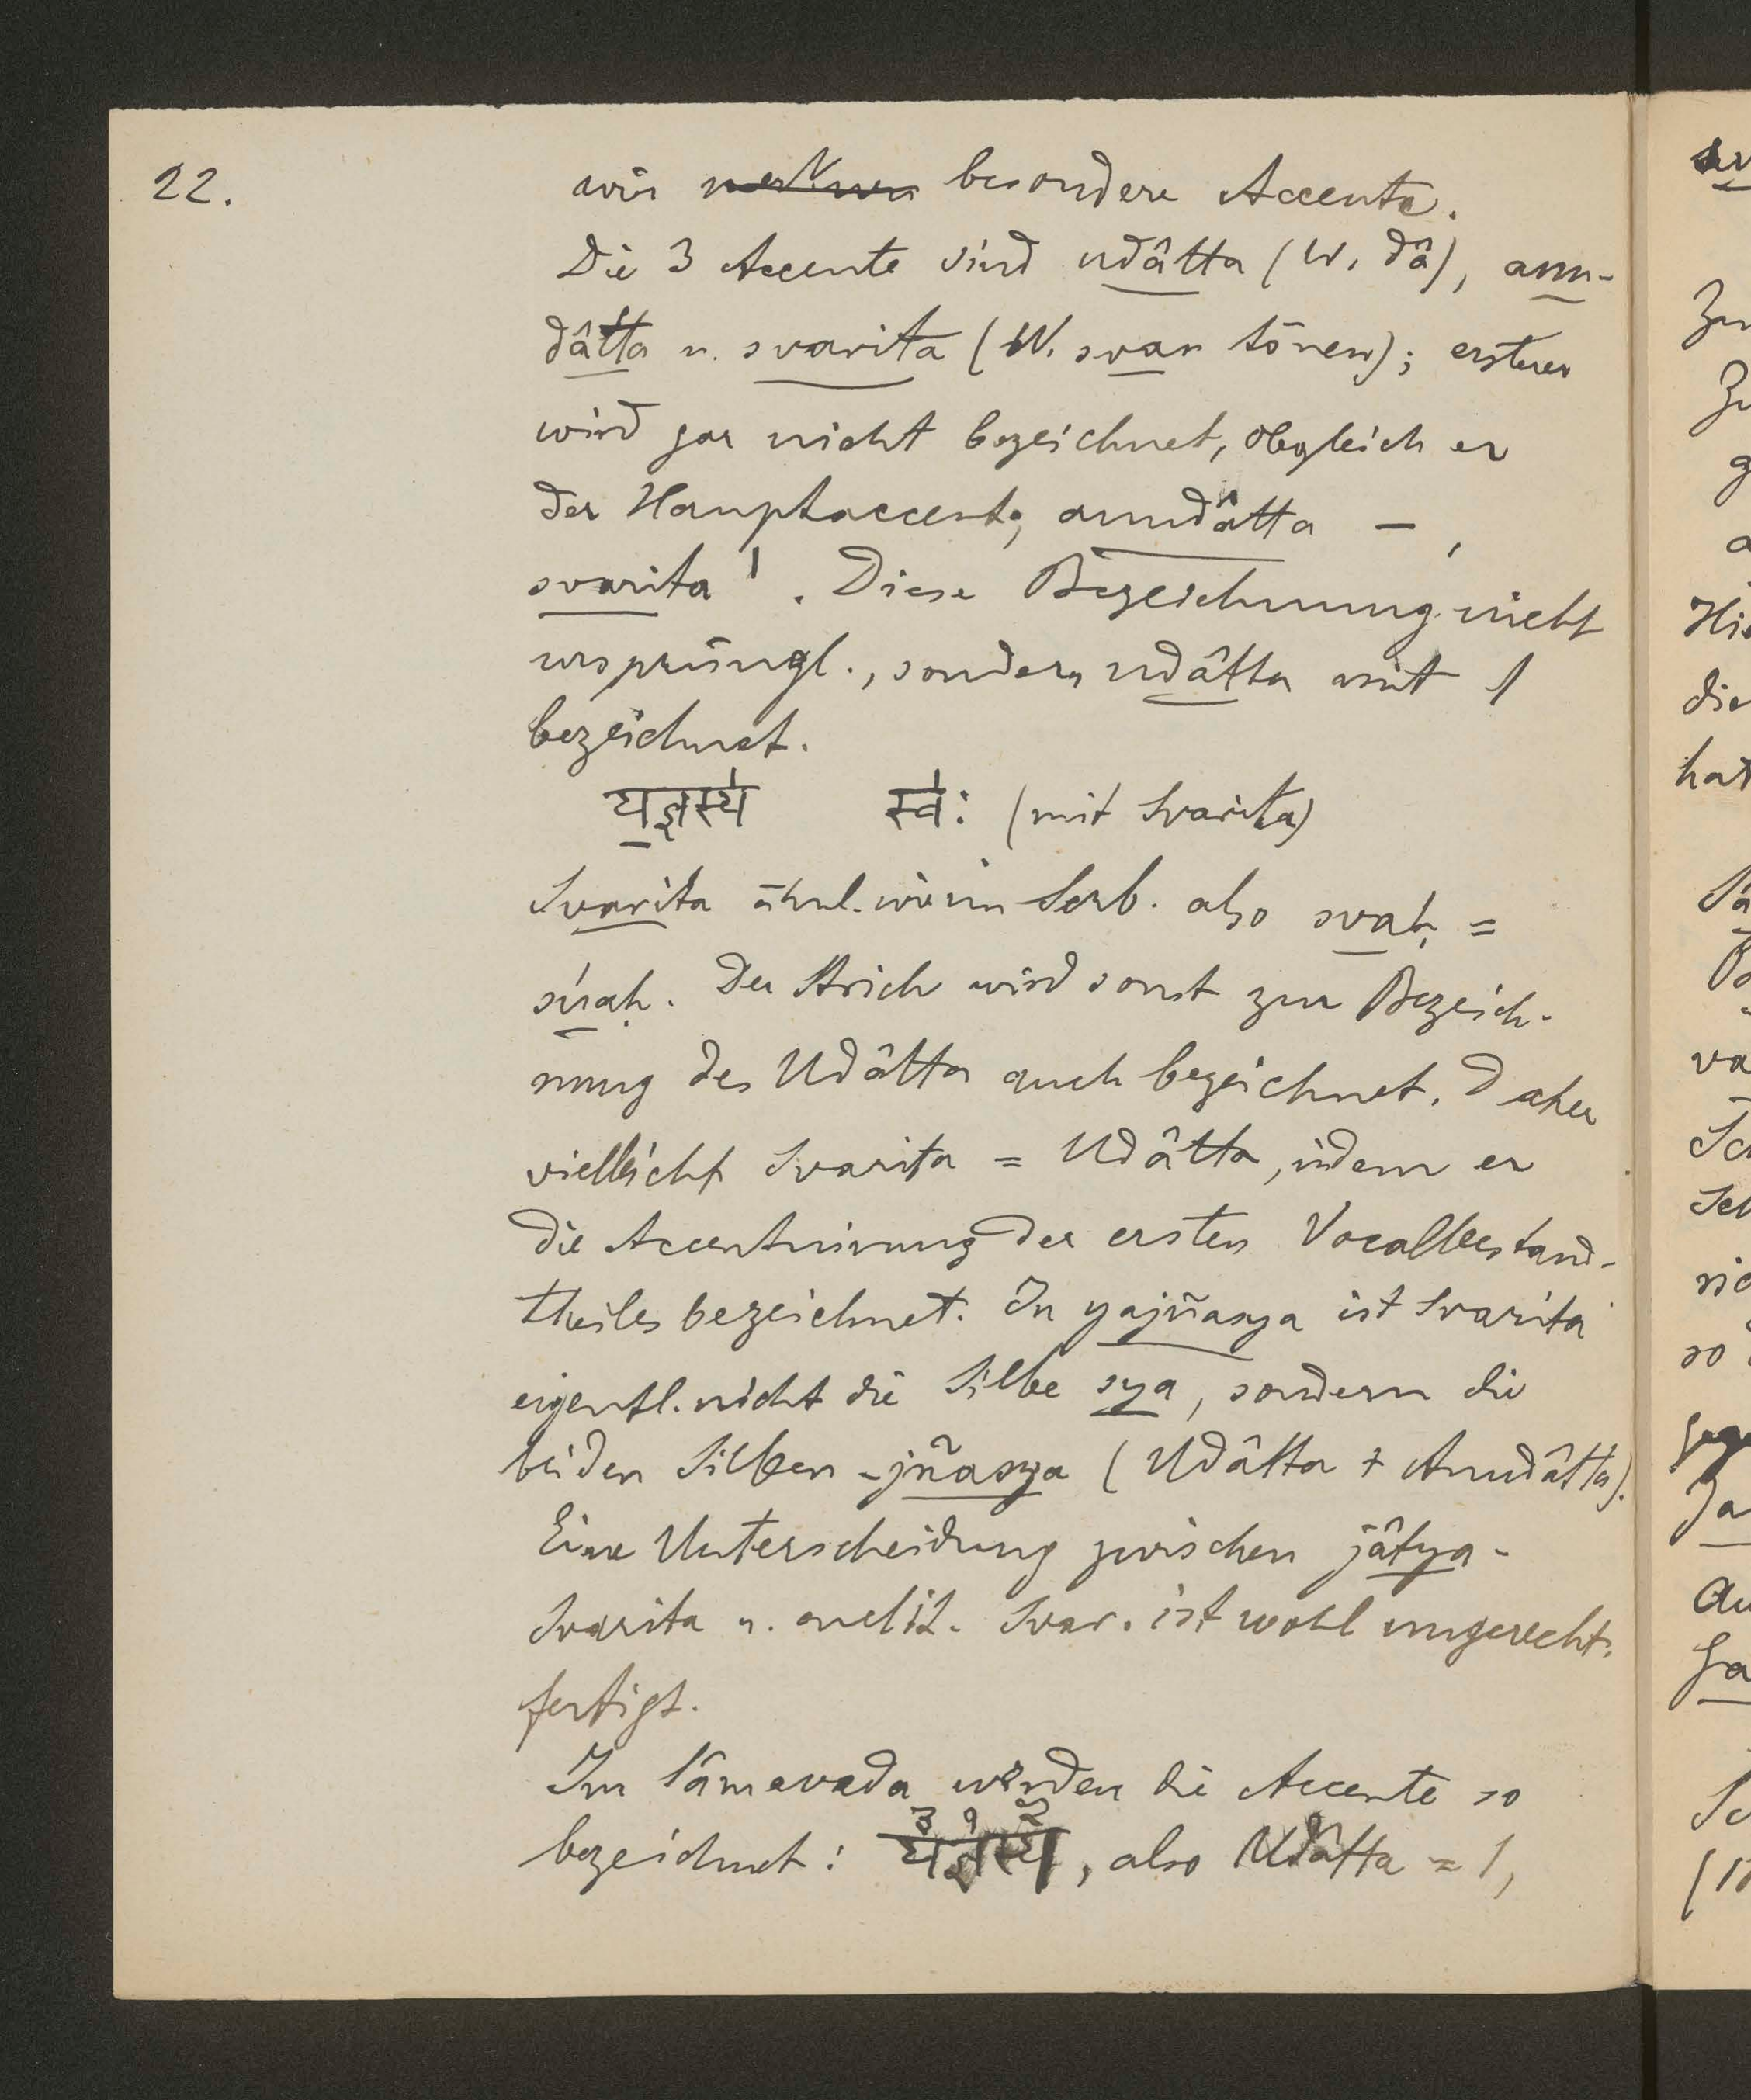 22.
wir besondere Accente.
Die 3 Accente sind udâtta (W. dâ), anu-
dâtta u. svarita (W. svar tönen); ersterer
wird gar nicht bezeichnet, obgleich er
der Hauptaccent; anudâtta – ,
svarita ˈ. Diese Bezeichnung nicht
ursprüngl., sondern udâtta mit ˈ
bezeichnet.
य॒ज्ञस्य॑ स्व॑ः (mit Svarita)
Svarita ähnl. wie im Serb. also svaḥ =
súaḥ. Der Strich wird sonst zur Bezeich-
nung des Udâtta auch bezeichnet. Daher
vielleicht Svarita = Udâtta, indem er
die Accentuirung der ersten Vocalbestand-
theiles bezeichnet. In yajñasya ist Svarita
eigentl. nicht die Silbe sya, sondern die
beiden Silben -jñasya (Udâtta + Anudâtta).
Eine Unterscheidung zwischen jâtya-
Svarita u. enclit. Svar. ist wohl ungerecht-
fertigt.
Im Sâmaveda werden die Accente so
bezeichnet: य३ज्ञ१स्य२, also Udâtta = 1,